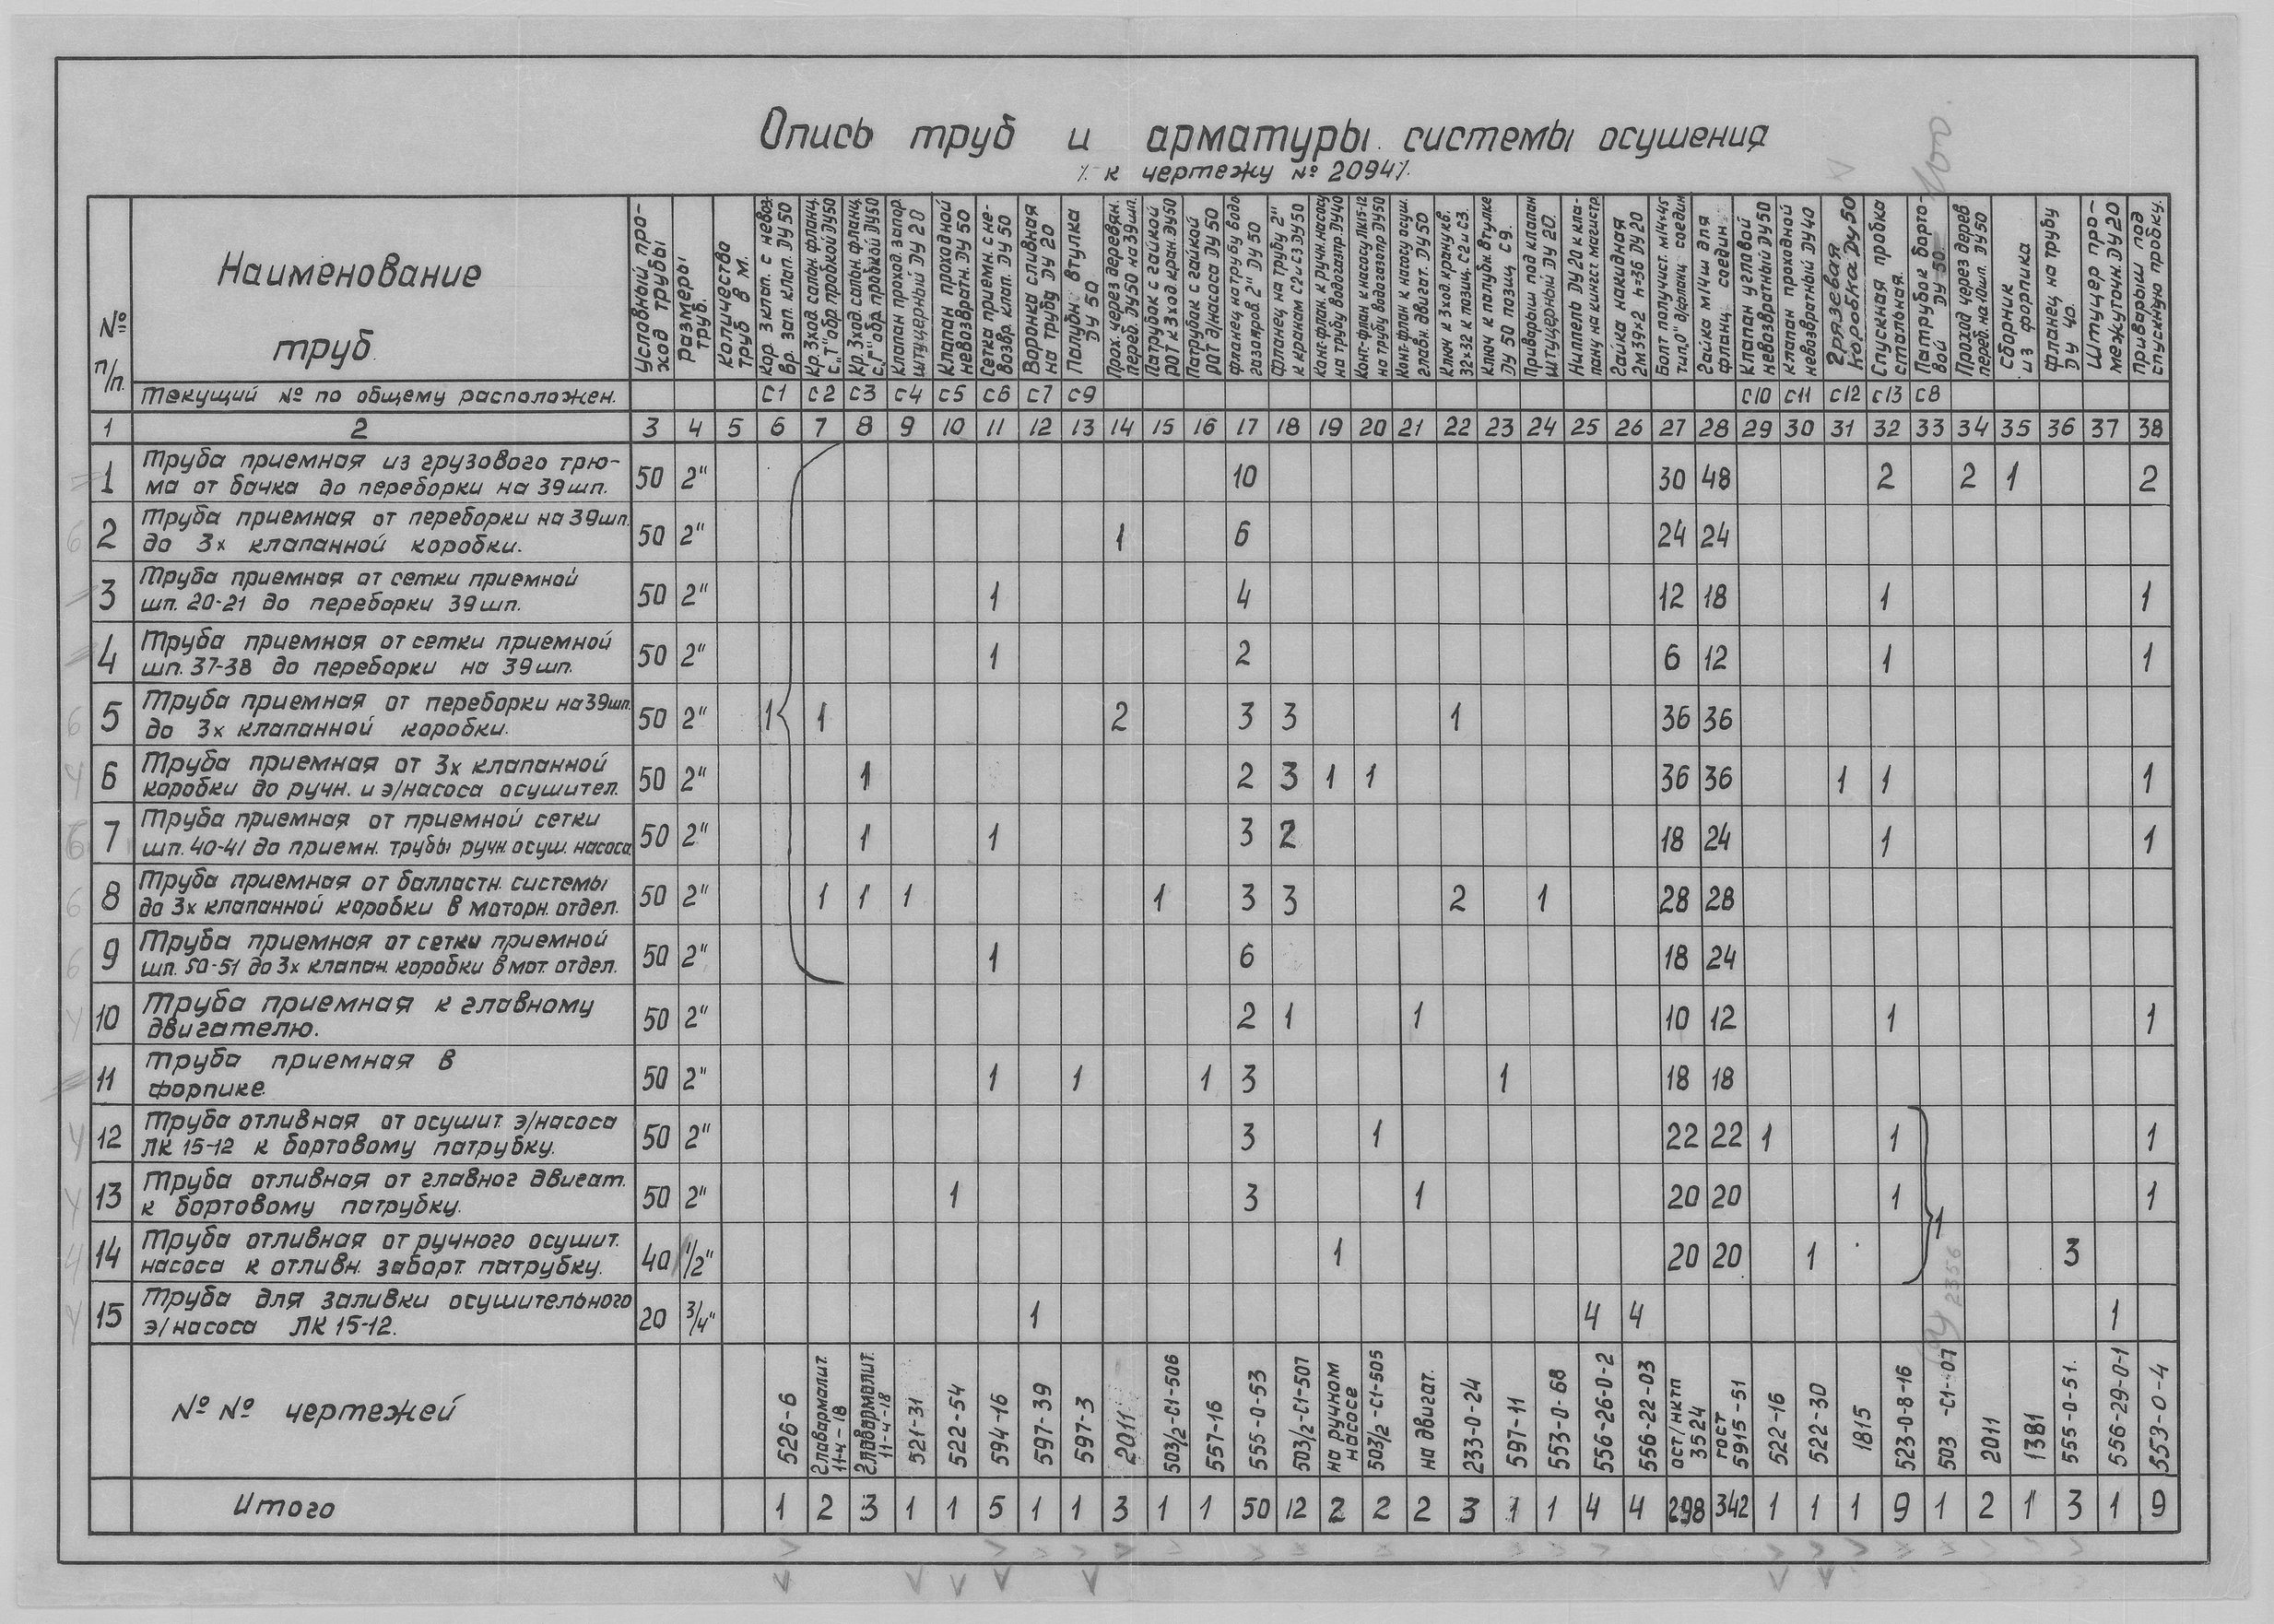 Опись труб и арматуры системы осушения
·/. к чертежу № 2094 ·/.
№ п/п.
Наименование
труб
Условный про-
ход трубы
Размеры
труб.
Количество
труб в м.
Кор. 3 клап. с невоз-
вр. зап. клап. Ду 50
Кр. 3ход. сальн. фланц.
с "Т" обр. пробкой Ду50
Кр. 3ход. сальн. фланц.
с "Г" обр. пробкой Ду50
Клапан проход. запор.
штуцерный Ду 20
Клапан проходной
невозвратн. Ду 50
Сетка приемн. с не-
возвр. клап. Ду 50
Воронка сливная
на трубу Ду 20
Палубн. втулка
Ду 50
Прох. через деревян.
перед. Ду50 на 39шп.
Патрубок с гайкой
рот к 3х ход. кран. Ду50
Патрубок с гайкой
рот д/насоса Ду 50
Фланец на трубу водо
газопров. 2" Ду 50
Фланец на трубу 2"
к кранам С2 и С3 Ду 50
Конт-флан. к ручн. насосу
на трубу водогазопр Ду40
Конт-флан к насосу ЛК15-12
на трубу водогазопр Ду50
Конт-флан к насосу осуш.
главн. двигат. Ду 50
Ключ к 3 ход. крану кв.
32×32 к позиц. С2 и С3.
Ключ к палубн. втулке
Ду 50 позиц С9.
Приварыш под клапан
штуцерный Ду 20.
Ниппель Ду 20 к кла-
пану на кингст. магистр
Гайка накидная
2м39×2 h=36 Ду 20
Болт получист. м14×45
тип "О" д/фланц. соедин
Гайка м14 ш для
фланц. соедин.
Клапан угловой
невозвратный Ду50
клапан проходной
невозвратный Ду 40
Грязевая
коробка Ду 50
Спускная пробка
стальная.
Патрубок борто-
вой Ду 50.
Проход через дерев
переб. на 10шп. Ду 50
Сборник
из форпика
Фланец на трубу
Ду 40.
Штуцер про-
межуточн. Ду 20
приварыш под
спускную пробку.
Текущий № по общему расположен.
С1 С2 С3 С4 С5 С6 С7 С9 С10 С11 С12 С13 С8
1 2 3 4 5 6 7 8 9 10 11 12 13 14 15 16 17 18 19 20 21 22 23 24 25 26 27 28 29 30 31 32 33 34 35 36 37 38
1 Труба приемная из грузового трю-
ма от бачка до переборки на 39 шп. 50 2" 10 30 48 2 2 1 2
2 Труба приемная от переборки на 39шп.
до 3х клапанной коробки. 50 2" 1 6 24 24
3 Труба приемная от сетки приемной
шп. 20-21 до переборки 39 шп. 50 2" 1 4 12 18 1 1
4 Труба приемная от сетки приемной
шп. 37-38 до переборки на 39 шп. 50 2" 1 2 6 12 1 1
5 Труба приемная от переборки на 39шп.
до 3х клапанной коробки. 50 2" 1 1 2 3 3 1 36 36
6 Труба приемная от 3х клапанной
коробки до ручн. и э/насоса осушител. 50 2" 1 2 3 1 1 36 36 1 1 1
7 Труба приемная от приемной сетки
шп. 40-41 до приемн. трубы ручн. осуш. насоса 50 2" 1 1 3 2 18 24 1 1
8 Труба приемная от балластн. системы
до 3х клапанной коробки в моторн. отдел. 50 2" 1 1 1 1 3 3 2 1 28 28
9 Труба приемная от сетки приемной
шп. 50-51 до 3х клапан. коробки в мот. отдел. 50 2" 1 6 18 24
10 Труба приемная к главному
двигателю. 50 2" 2 1 1 10 12 1 1
11 Труба приемная в
форпике. 50 2" 1 1 1 3 1 18 18
12 Труба отливная от осушит. э/насоса
ЛК 15-12 к бортовому патрубку. 50 2" 3 1 22 22 1 1 1
13 Труба отливная от главног двигат.
к бортовому патрубку. 50 2" 1 3 1 20 20 1 1 1
14 Труба отливная от ручного осушит.
насоса к отливн. заборт. патрубку. 40 1/2" 1 20 20 1 3
15 Труба для заливки осушительного
э/насоса ЛК 15-12. 20 3/4" 1 4 4 1
№ № чертежей
526-6
Главармалит.
11-ч-18
Главармалит.
11-ч-18
521-31
522-54
594-16
597-39
597-3
2011
503/2-С1-506
557-16
555-0-53
503/2-С1-507
на ручном
насосе
503/2-С1-505
на двигат.
233-0-24
597-11
553-0-68
556-26-0-2
556-22-03
ост/нктп
3524
гост
5915-51
522-16
522-30
1815
523-0-8-16
503-С1-07
2011
1381
555-0-51.
556-29-0-1
553-0-4
Итого 1 2 3 1 1 5 1 1 3 1 1 50 12 2 2 2 3 1 1 4 4 298 342 1 1 1 9 1 2 1 3 1 9